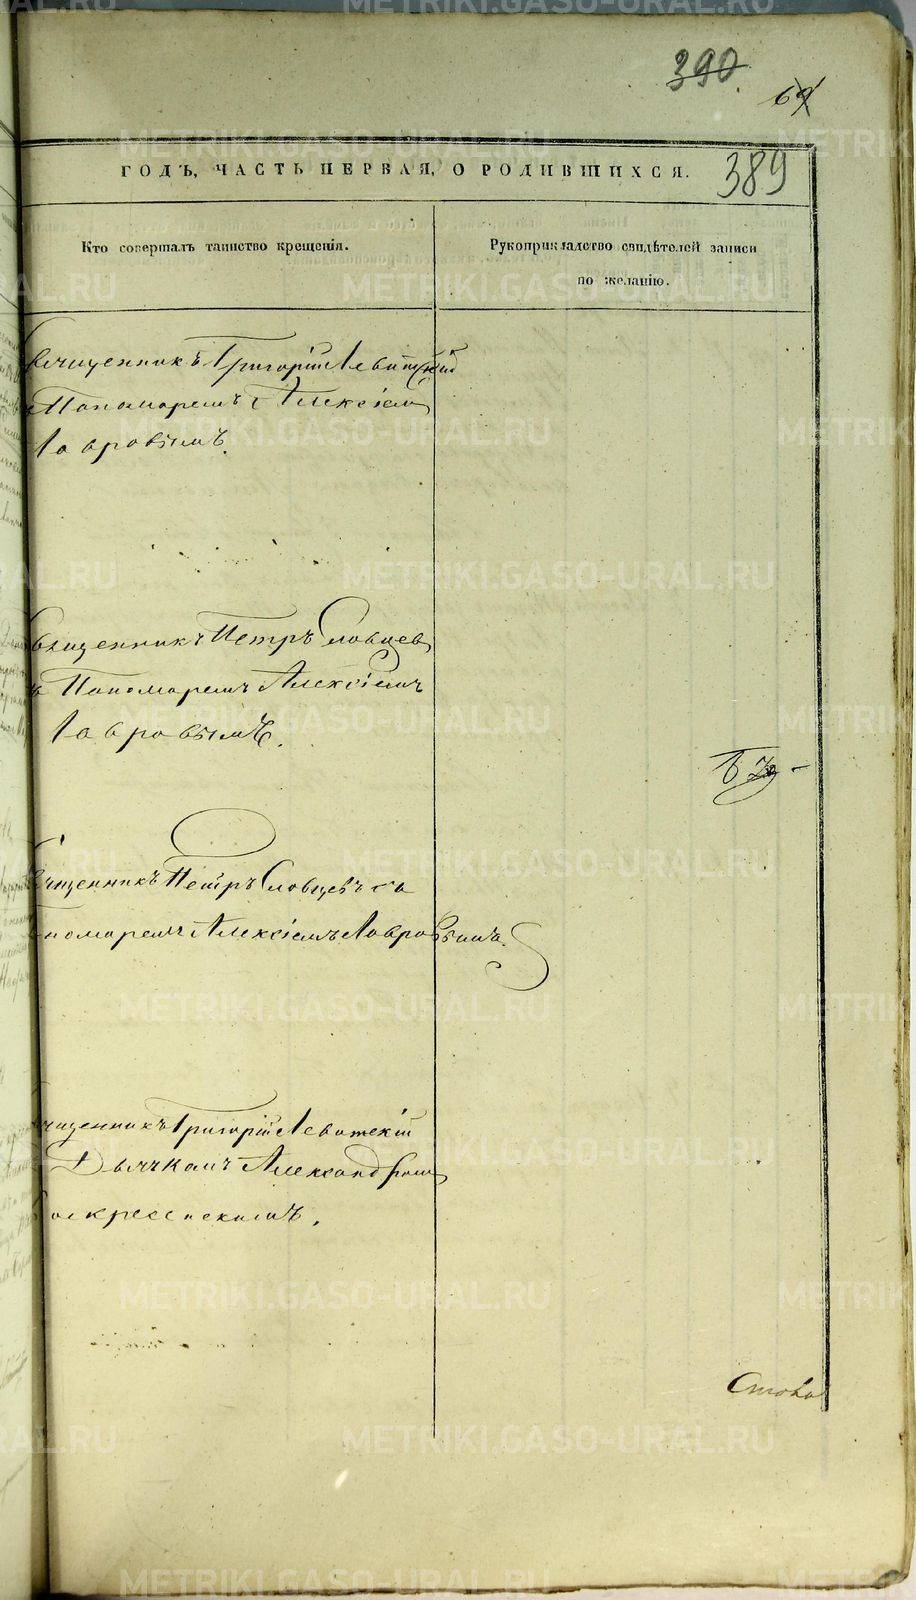 390
69
389
ГОДЪ, ЧАСТЬ ПЕРВАЯ, О РОДИВШИХСЯ.
Кто совершалъ таинство крещенія.
Рукоприкладство свидѣтелей записи
по желанію.
Священникъ Григорій Левитскій
Пономаремъ Алексіем
Лавровымъ.
Священникъ Петръ Словцев
съ Пономаремъ Алексіемъ
Лавровымъ.
Священникъ Петръ Словцевъ съ
Пономаремъ Алексіемъ Лавровымъ.
Священникъ Григорій Левитскій
Дьячкомъ Александром
Воскресенскимъ.
METRIKI.GASO-URAL.RU